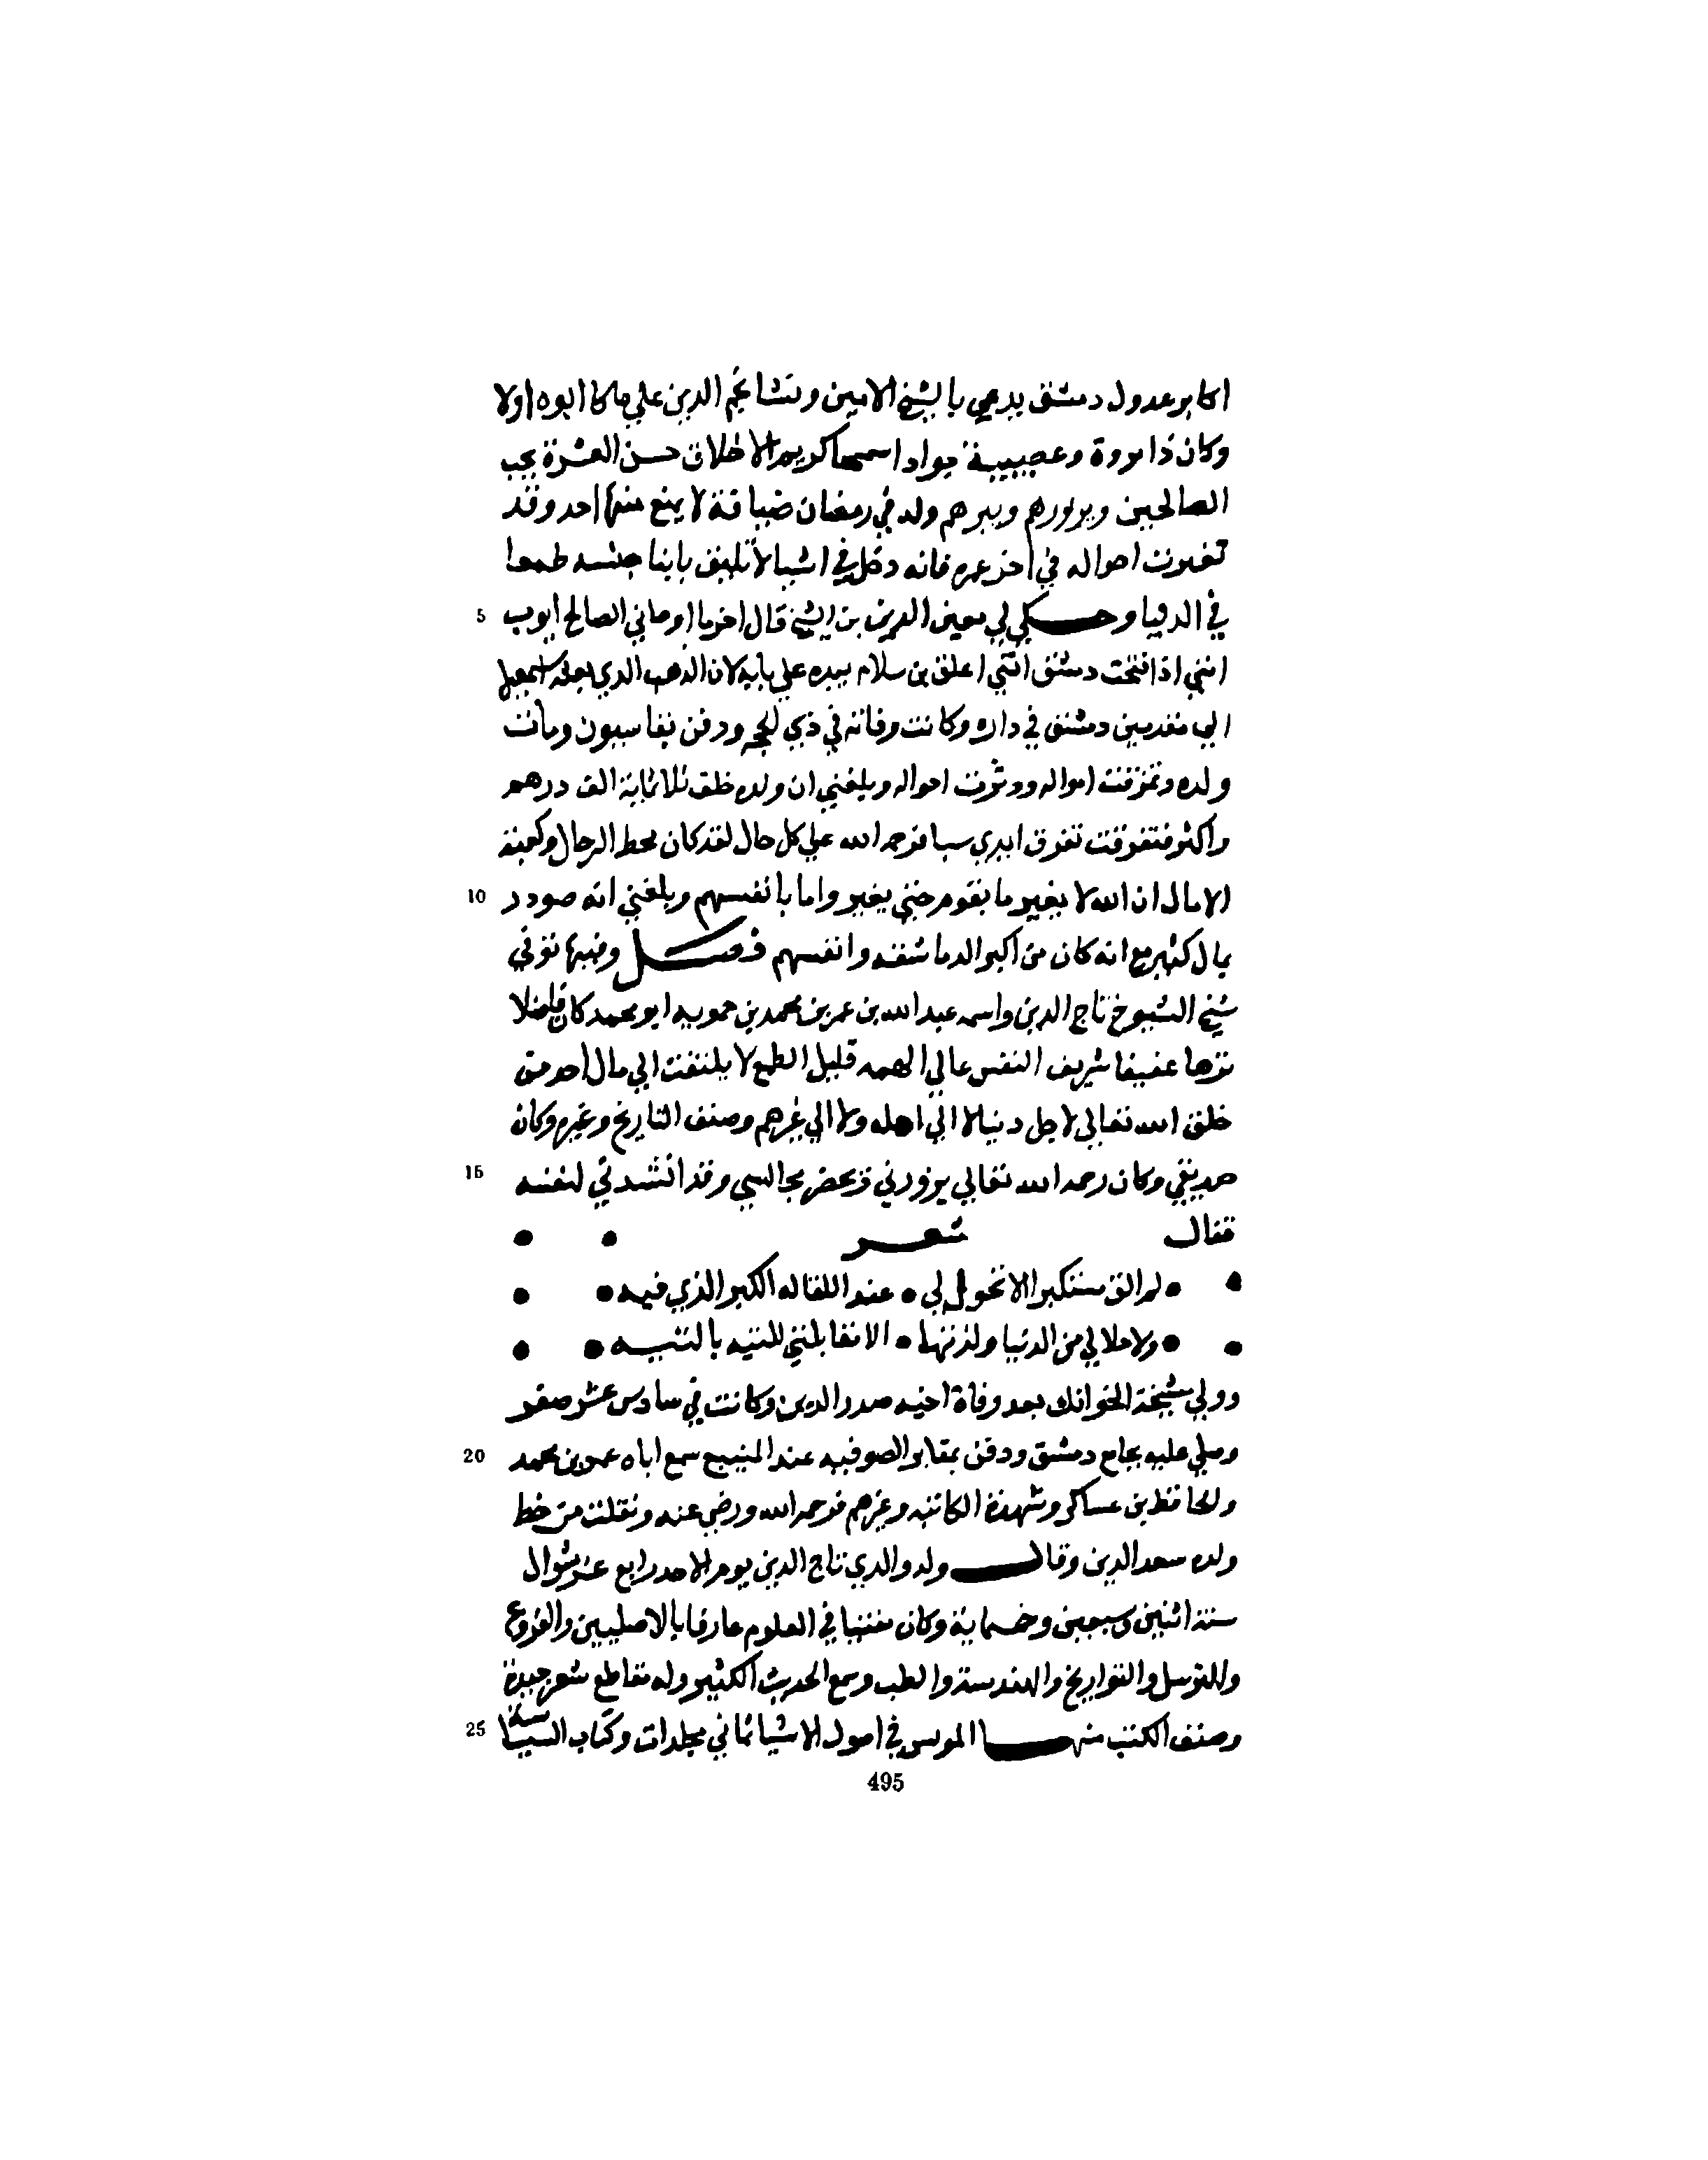 اكابر عدول دمشق يدعي بالشيخ الامين ونشا نجم الدين علي ما كا ابوه اولا
وكان ذا مروة وعصبيية جوادا سمحا كريم الاخلاق حسن العشرة يحب
الصالحين ويزورهم ويبرهم وله في رمضان ضيافة لا يمنع منها احد وقد
تغيرت احواله في اخر عمره فانه دخل في اشيا لا تليق بابنا جنسه طمعا
في الدنيا وحكي لي معين الدين بن الشيخ قال اخر ما اوصاني الصالح ايوب 5
انني اذا فتحت دمشق انني اعلق بن سلام بيده علي بابه لان الذهب الذي بعثه اسمعيل
الي مقدمين دمشق في داره وكانت وفاته في ذي الحجه ودفن بقاسيون ومات
ولده وتمزقت امواله ودثرت احواله وبلغني ان ولده خلف ثلاثماية الف درهم
واكثر فتفرقت تفرق ايدي سبا فرحمه الله علي كل حال لقد كان محط الرحال وكعبة
الامال ان الله لا يغير ما بقوم حتي يغيروا ما بانفسهم وبلغني انه صودر 10
بمال كثير مع انه كان من اكبر الدماشقه وانفسهم فصل وفيها توفي
شيخ الشيوخ تاج الدين واسمه عبد الله بن عمر بن محمد بن حمويه ابو محمد كان فاضلا
نزها عفيفا شريف النفس عالي الهمه قليل الطمع لا يلتفت الي مال احد من
خلق الله تعالي لاجل دنيا لا الي اهله ولا الي غيرهم وصنف التاريخ وغيره وكان
صديقي وكان رحمه الله تعالي يزورني ويحضر مجالسي وقد انشدني لنفسه 15
فقال شعر
لم الق مستكبرا الا تحول لي • عند اللقا له الكبر الذي فيه
ولا حلا لي من الدنيا ولذتها • الا مقابلتي للتيه بالتيه
وولي مشيخة الخوانك بعد وفاة اخيه صدر الدين وكانت في سادس عشر صفر
وصلي عليه بجامع دمشق ودفن بمقابر الصوفيه عند المنيبع سمع اباه عمر بن محمد 20
والحافظ بن عساكر وشهدة الكاتبه وغيرهم فرحمه الله ورضي عنه ونقلت من خط
ولده سعد الدين وقال ولد والدي تاج الدين يوم الاحد رابع عشر شوال
سنة اثنين وسبعين وخمسماية وكان مفتيا في العلوم عارفا بالاصليين والفروع
والترسل والتواريخ والهندسة والطب وسمع الحديث الكثير وله مقاطع شعر جيدة
وصنف الكتب منها الموس في اصول الاشيا ثماني مجلدات وكتاب السياسة 25
495